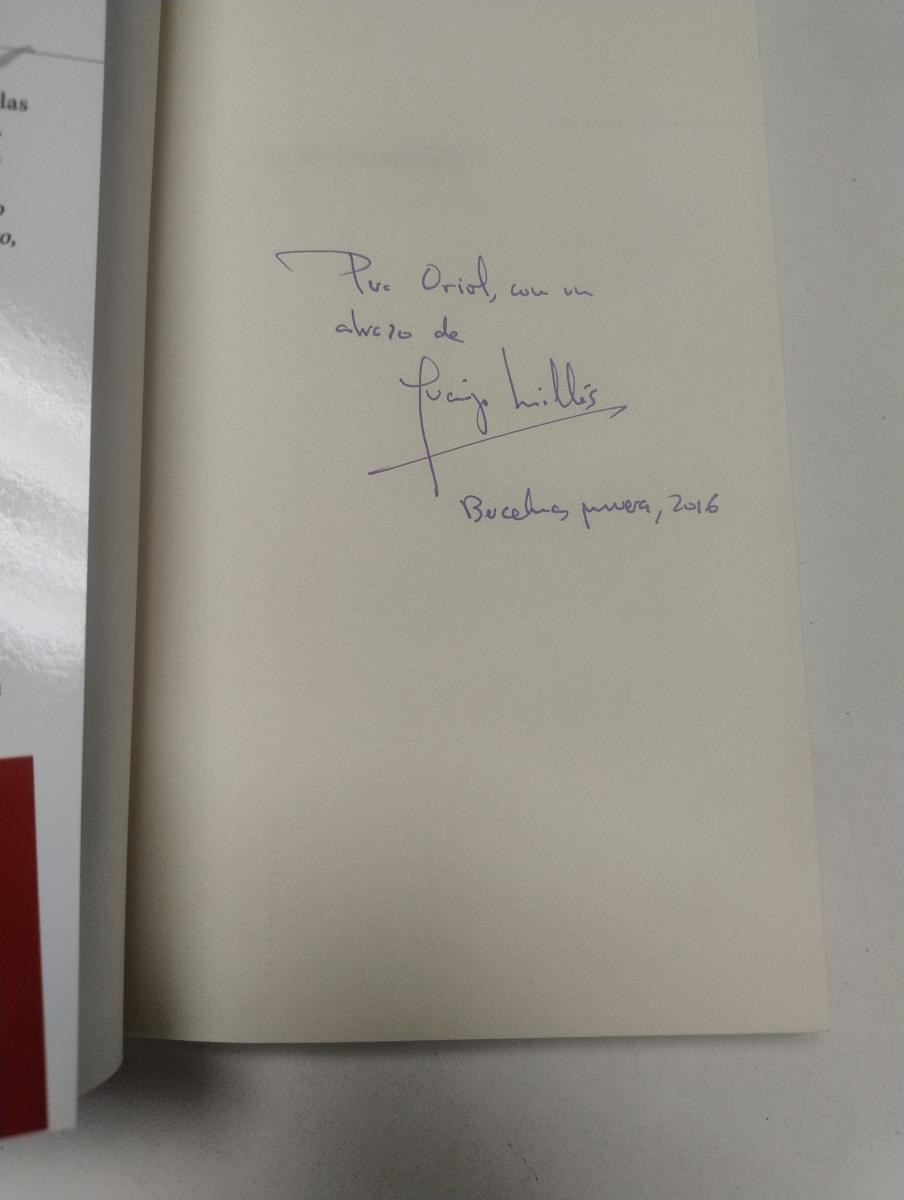 las
o
o,
Para Oriol, con un
abrazo de
Juanjo Millás
Barcelona, enero, 2016